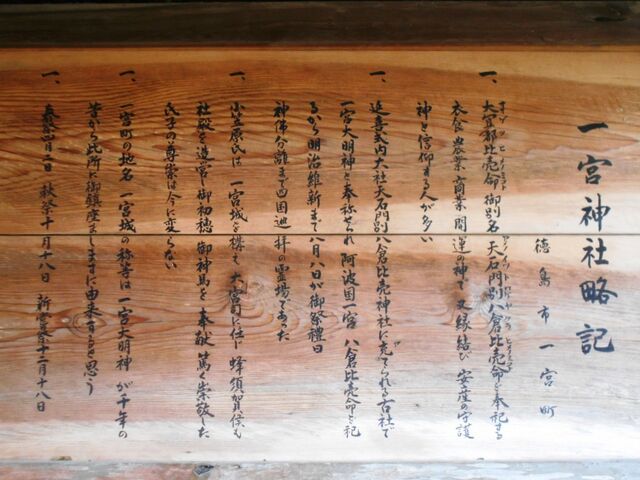 一宮神社略記
徳島市一宮町
一、大宮郡比売命 御別名 天石門別八倉比売命を奉祀する
オオゲツヒメノミコト アメノイワトワケヤクラヒメノミコト
衣食 農業 商業 開運の神で 又縁結び 安産の守護
神と信仰する人が多い
一、延喜式内大社天石門別八倉比売神社に充てられる古社で
一宮大明神と奉称せられ 阿波国一宮 八倉比売命を祀
るから明治維新まで八月八日が御祭禮日
神佛分離まで四国巡拝の霊場であった
一、小笠原氏は 一宮城を構え 大宮司に任じ 蜂須賀侯も
社殿を造営し 御初穂 御神馬を奉献 篤く崇敬した
氏子の尊崇は今に変らない
一、一宮町の地名 一宮城の称号は 一宮大明神が千年の
昔から此所に御鎮座まします に由来すると思う
一、春祭四月二日 秋祭十月十八日 新嘗祭十二月十八日